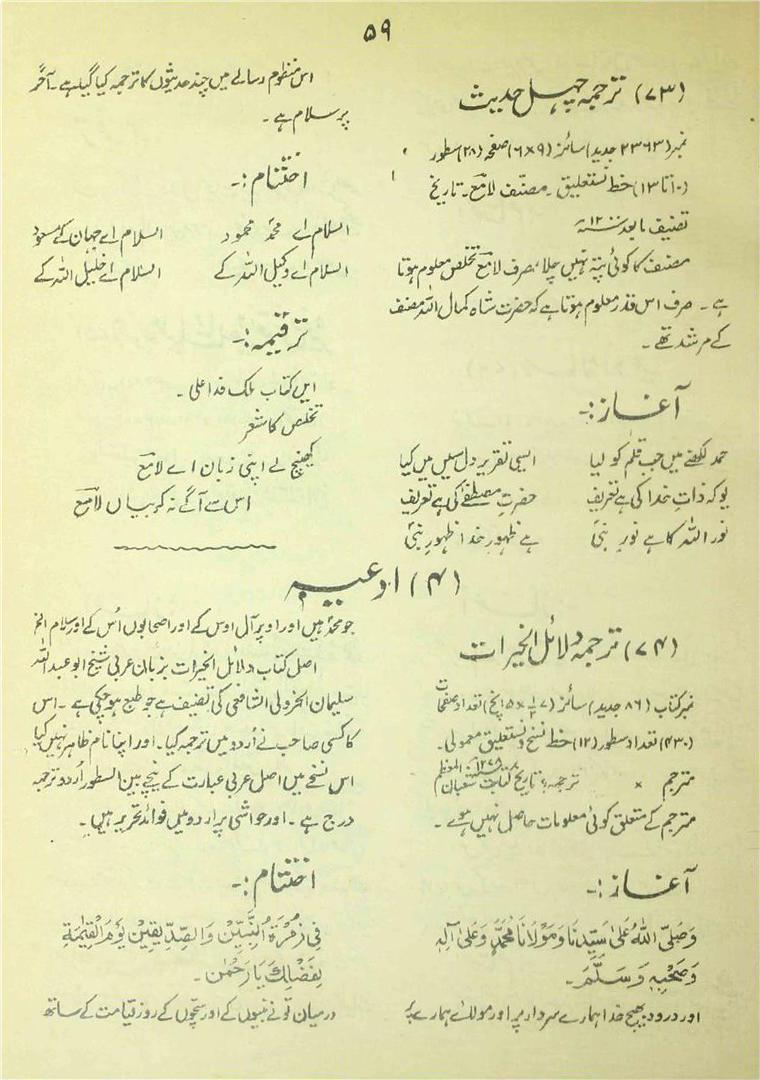 ۵۹
(۷۳) ترجمہ چہل حدیث
نمبر (۲۳۶۳ جدید) سائز (۹×۶) صفحہ (۲۸) سطور
(۱۰ تا ۱۳) خط نستعلیق ۔ مصنّف لامعؔ ۔ تاریخ
تصنیف مابعد ۱۲۰۰ھ
مصنف کا کوئی پتہ نہیں چلا، صرف لامعؔ تخلص معلوم ہوتا
ہے ۔ صرف اس قدر معلوم ہوتا ہے کہ حضرت شاہ کمال اللہ مصنف
کے مرشد تھے ۔
آغاز :-
حمد لکھنے میں جب قلم کو لیا ایسی تقریر دل سیں میں کیا
یو کہ ذاتِ خدا کی ہے تعریف حضرتِ مصطفےٰؐ کی ہے تعریف
نور اللہ کا ہے نورِ نبیؐ ہے ظہورِ خدا ظہورِ نبیؐ
اس منظوم رسالے میں چند حدیثوں کا ترجمہ کیا گیا ہے ۔ آخر
پر سلام ہے ۔
اختتام :-
السلام اے محمدؐ محمود السلام اے جہان کے مسعود
السلام اے وکیل اللہ کے السلام اے خلیل اللہ کے
ترقیمہ :-
ایں کتاب ملک فدا علی ۔
تخلص کا شعر
کھینچ لے اپنی زبان اے لامعؔ
اس سے آگے نہ کر بیاں لامعؔ
(۴) ادعیہ
(۷۴) ترجمہ دلائل الخیرات
نمبر کتاب (۸۶ جدید) سائز (۷ ۱/۲ × ۵ انچ) تعداد صفحات
(۴۳۰) تعداد سطور (۱۲) خط نسخ و نستعلیق معمولی ۔
مترجم × ترجمہ، تاریخ کتابت شعبان المعظم
مترجم کے متعلق کوئی معلومات حاصل نہیں ہوے ۔
آغاز :-
وَصَلَّی اللّٰهُ عَلٰی سَیِّدِنَا وَمَوْلَانَا مُحَمَّدٍ وَعَلٰی آلِهٖ
وَصَحْبِهٖ وَسَلَّمَ ۔
اور درود بھیج خدا ہمارے سردار پر اور مولائے ہمارے پر
جو محمدؐ ہیں اور اوپر آل اوس کے اور اصحابوں اُس کے اور سلام الخ
اصل کتاب دلائل الخیرات بزبان عربی شیخ ابو عبد اللہ
سلیمان الجزولی الشافعی کی تصنیف ہے جو طبع ہو چکی ہے ۔ اس
کا کسی صاحب نے اُردو میں ترجمہ کیا ۔ اور اپنا نام ظاہر نہیں کیا
اس نسخے میں اصل عربی عبارت کے نیچے بین السطور اُردو ترجمہ
درج ہے ۔ اور حواشی پر اردو میں فوائد تحریر ہیں ۔
اختتام :-
فِی زُمْرَةِ النَّبِیِّیْنَ وَالصِّدِّیْقِیْنَ یَوْمَ الْقِیٰمَةِ
بِفَضْلِكَ یَا رَحْمٰن ۔
درمیان تولے نبیوں کے اور سچّوں کے روز قیامت کے ساتھ